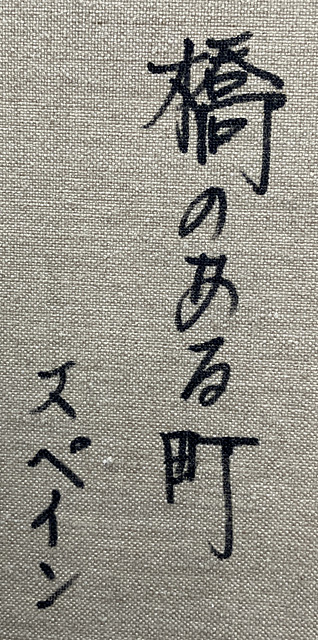 橋のある町
スペイン